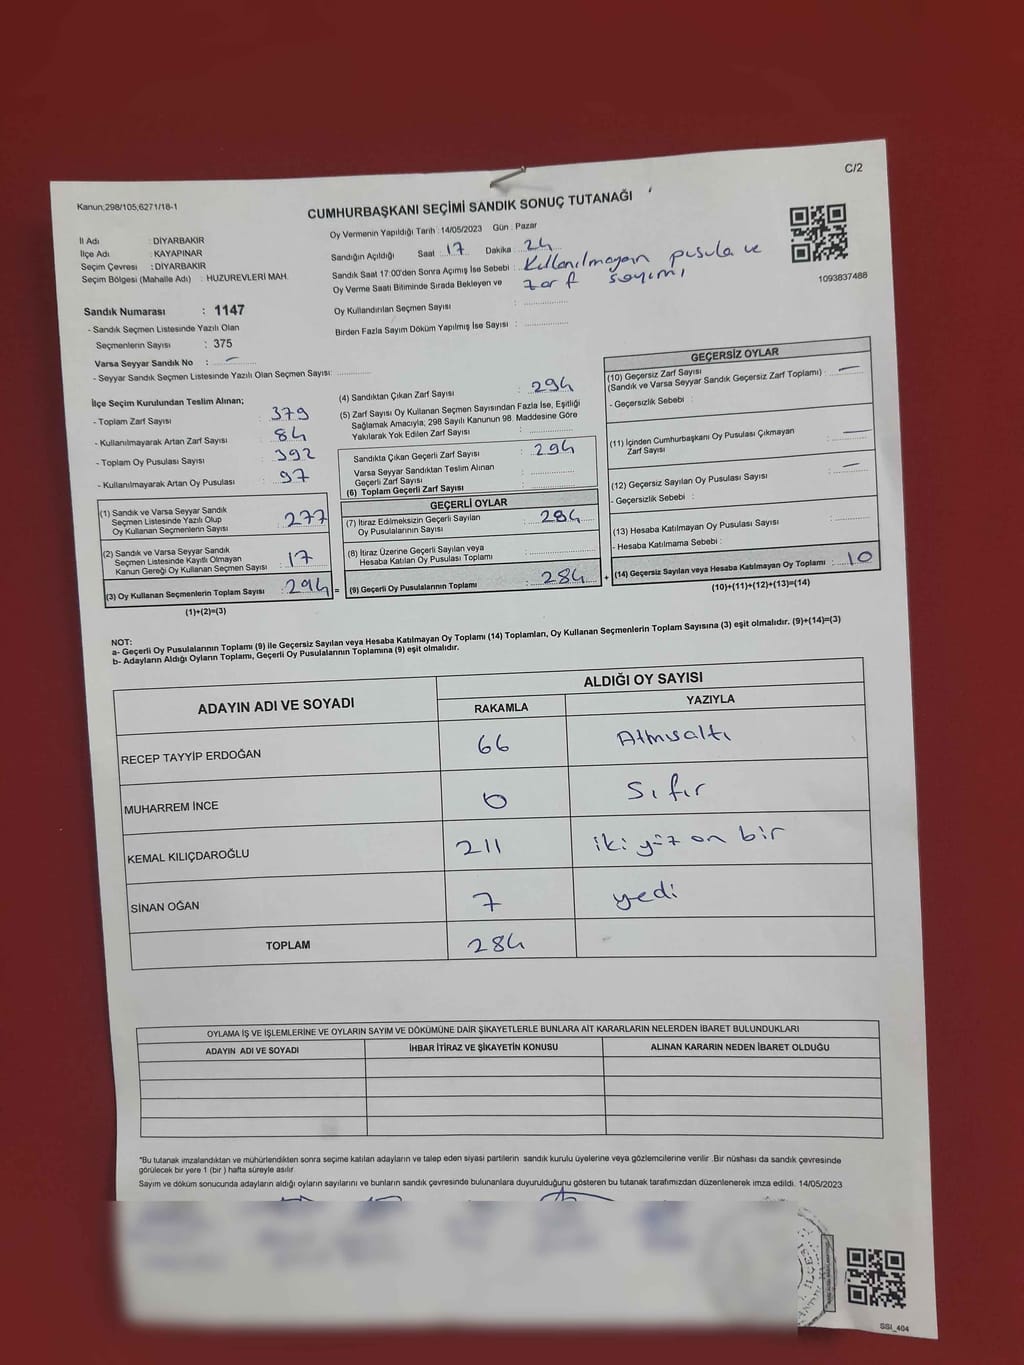 C/2
Kanun;298/105;6271/18-1
CUMHURBAŞKANI SEÇİMİ SANDIK SONUÇ TUTANAĞI
İl Adı : DİYARBAKIR
İlçe Adı : KAYAPINAR
Seçim Çevresi : DİYARBAKIR
Seçim Bölgesi (Mahalle Adı) : HUZUREVLERİ MAH.
Oy Vermenin Yapıldığı Tarih : 14/05/2023 Gün : Pazar
Sandığın Açıldığı Saat 17 Dakika : 24
Sandık Saat 17:00'den Sonra Açımış İse Sebebi : Kullanılmayan pusula ve
Oy Verme Saati Bitiminde Sırada Bekleyen ve zarf sayımı
Oy Kullandırılan Seçmen Sayısı :
Birden Fazla Sayım Döküm Yapılmış İse Sayısı :
1093837488
Sandık Numarası : 1147
- Sandık Seçmen Listesinde Yazılı Olan
Seçmenlerin Sayısı : 375
Varsa Seyyar Sandık No : –
- Seyyar Sandık Seçmen Listesinde Yazılı Olan Seçmen Sayısı:
İlçe Seçim Kurulundan Teslim Alınan;
- Toplam Zarf Sayısı : 379
- Kullanılmayarak Artan Zarf Sayısı : 84
- Toplam Oy Pusulası Sayısı : 392
- Kullanılmayarak Artan Oy Pusulası : 97
(1) Sandık ve Varsa Seyyar Sandık
Seçmen Listesinde Yazılı Olup
Oy Kullanan Seçmenlerin Sayısı : 277
(2) Sandık ve Varsa Seyyar Sandık
Seçmen Listesinde Kayıtlı Olmayan
Kanun Gereği Oy Kullanan Seçmen Sayısı : 17
(3) Oy Kullanan Seçmenlerin Toplam Sayısı : 294 =
(1)+(2)=(3)
(4) Sandıktan Çıkan Zarf Sayısı : 294
(5) Zarf Sayısı Oy Kullanan Seçmen Sayısından Fazla İse, Eşitliği
Sağlamak Amacıyla, 298 Sayılı Kanunun 98. Maddesine Göre
Yakılarak Yok Edilen Zarf Sayısı :
Sandıkta Çıkan Geçerli Zarf Sayısı : 294
Varsa Seyyar Sandıktan Teslim Alınan
Geçerli Zarf Sayısı :
(6) Toplam Geçerli Zarf Sayısı :
GEÇERLİ OYLAR
(7) İtiraz Edilmeksizin Geçerli Sayılan
Oy Pusulalarının Sayısı : 284
(8) İtiraz Üzerine Geçerli Sayılan veya
Hesaba Katılan Oy Pusulası Toplamı :
(9) Geçerli Oy Pusulalarının Toplamı : 284 +
GEÇERSİZ OYLAR
(10) Geçersiz Zarf Sayısı
(Sandık ve Varsa Seyyar Sandık Geçersiz Zarf Toplamı) : —
- Geçersizlik Sebebi :
(11) İçinden Cumhurbaşkanı Oy Pusulası Çıkmayan
Zarf Sayısı : —
(12) Geçersiz Sayılan Oy Pusulası Sayısı : —
- Geçersizlik Sebebi :
(13) Hesaba Katılmayan Oy Pusulası Sayısı :
- Hesaba Katılmama Sebebi :
(14) Geçersiz Sayılan veya Hesaba Katılmayan Oy Toplamı : 10
(10)+(11)+(12)+(13)=(14)
NOT:
a- Geçerli Oy Pusulalarının Toplamı (9) ile Geçersiz Sayılan veya Hesaba Katılmayan Oy Toplamı (14) Toplamları, Oy Kullanan Seçmenlerin Toplam Sayısına (3) eşit olmalıdır. (9)+(14)=(3)
b- Adayların Aldığı Oyların Toplamı, Geçerli Oy Pusulalarının Toplamına (9) eşit olmalıdır.
ADAYIN ADI VE SOYADI ALDIĞI OY SAYISI
RAKAMLA YAZIYLA
RECEP TAYYİP ERDOĞAN 66 Atmışaltı
MUHARREM İNCE 0 Sıfır
KEMAL KILIÇDAROĞLU 211 iki yüz on bir
SİNAN OĞAN 7 yedi
TOPLAM 284
OYLAMA İŞ VE İŞLEMLERİNE VE OYLARIN SAYIM VE DÖKÜMÜNE DAİR ŞİKAYETLERLE BUNLARA AİT KARARLARIN NELERDEN İBARET BULUNDUKLARI
ADAYIN ADI VE SOYADI İHBAR İTİRAZ VE ŞİKAYETİN KONUSU ALINAN KARARIN NEDEN İBARET OLDUĞU
*Bu tutanak imzalandıktan ve mühürlendikten sonra seçime katılan adayların ve talep eden siyasi partilerin sandık kurulu üyelerine veya gözlemcilerine verilir .Bir nüshası da sandık çevresinde
görülecek bir yere 1 (bir ) hafta süreyle asılır.
Sayım ve döküm sonucunda adayların aldığı oyların sayılarını ve bunların sandık çevresinde bulunanlara duyurulduğunu gösteren bu tutanak tarafımızdan düzenlenerek imza edildi. 14/05/2023
SSI_404